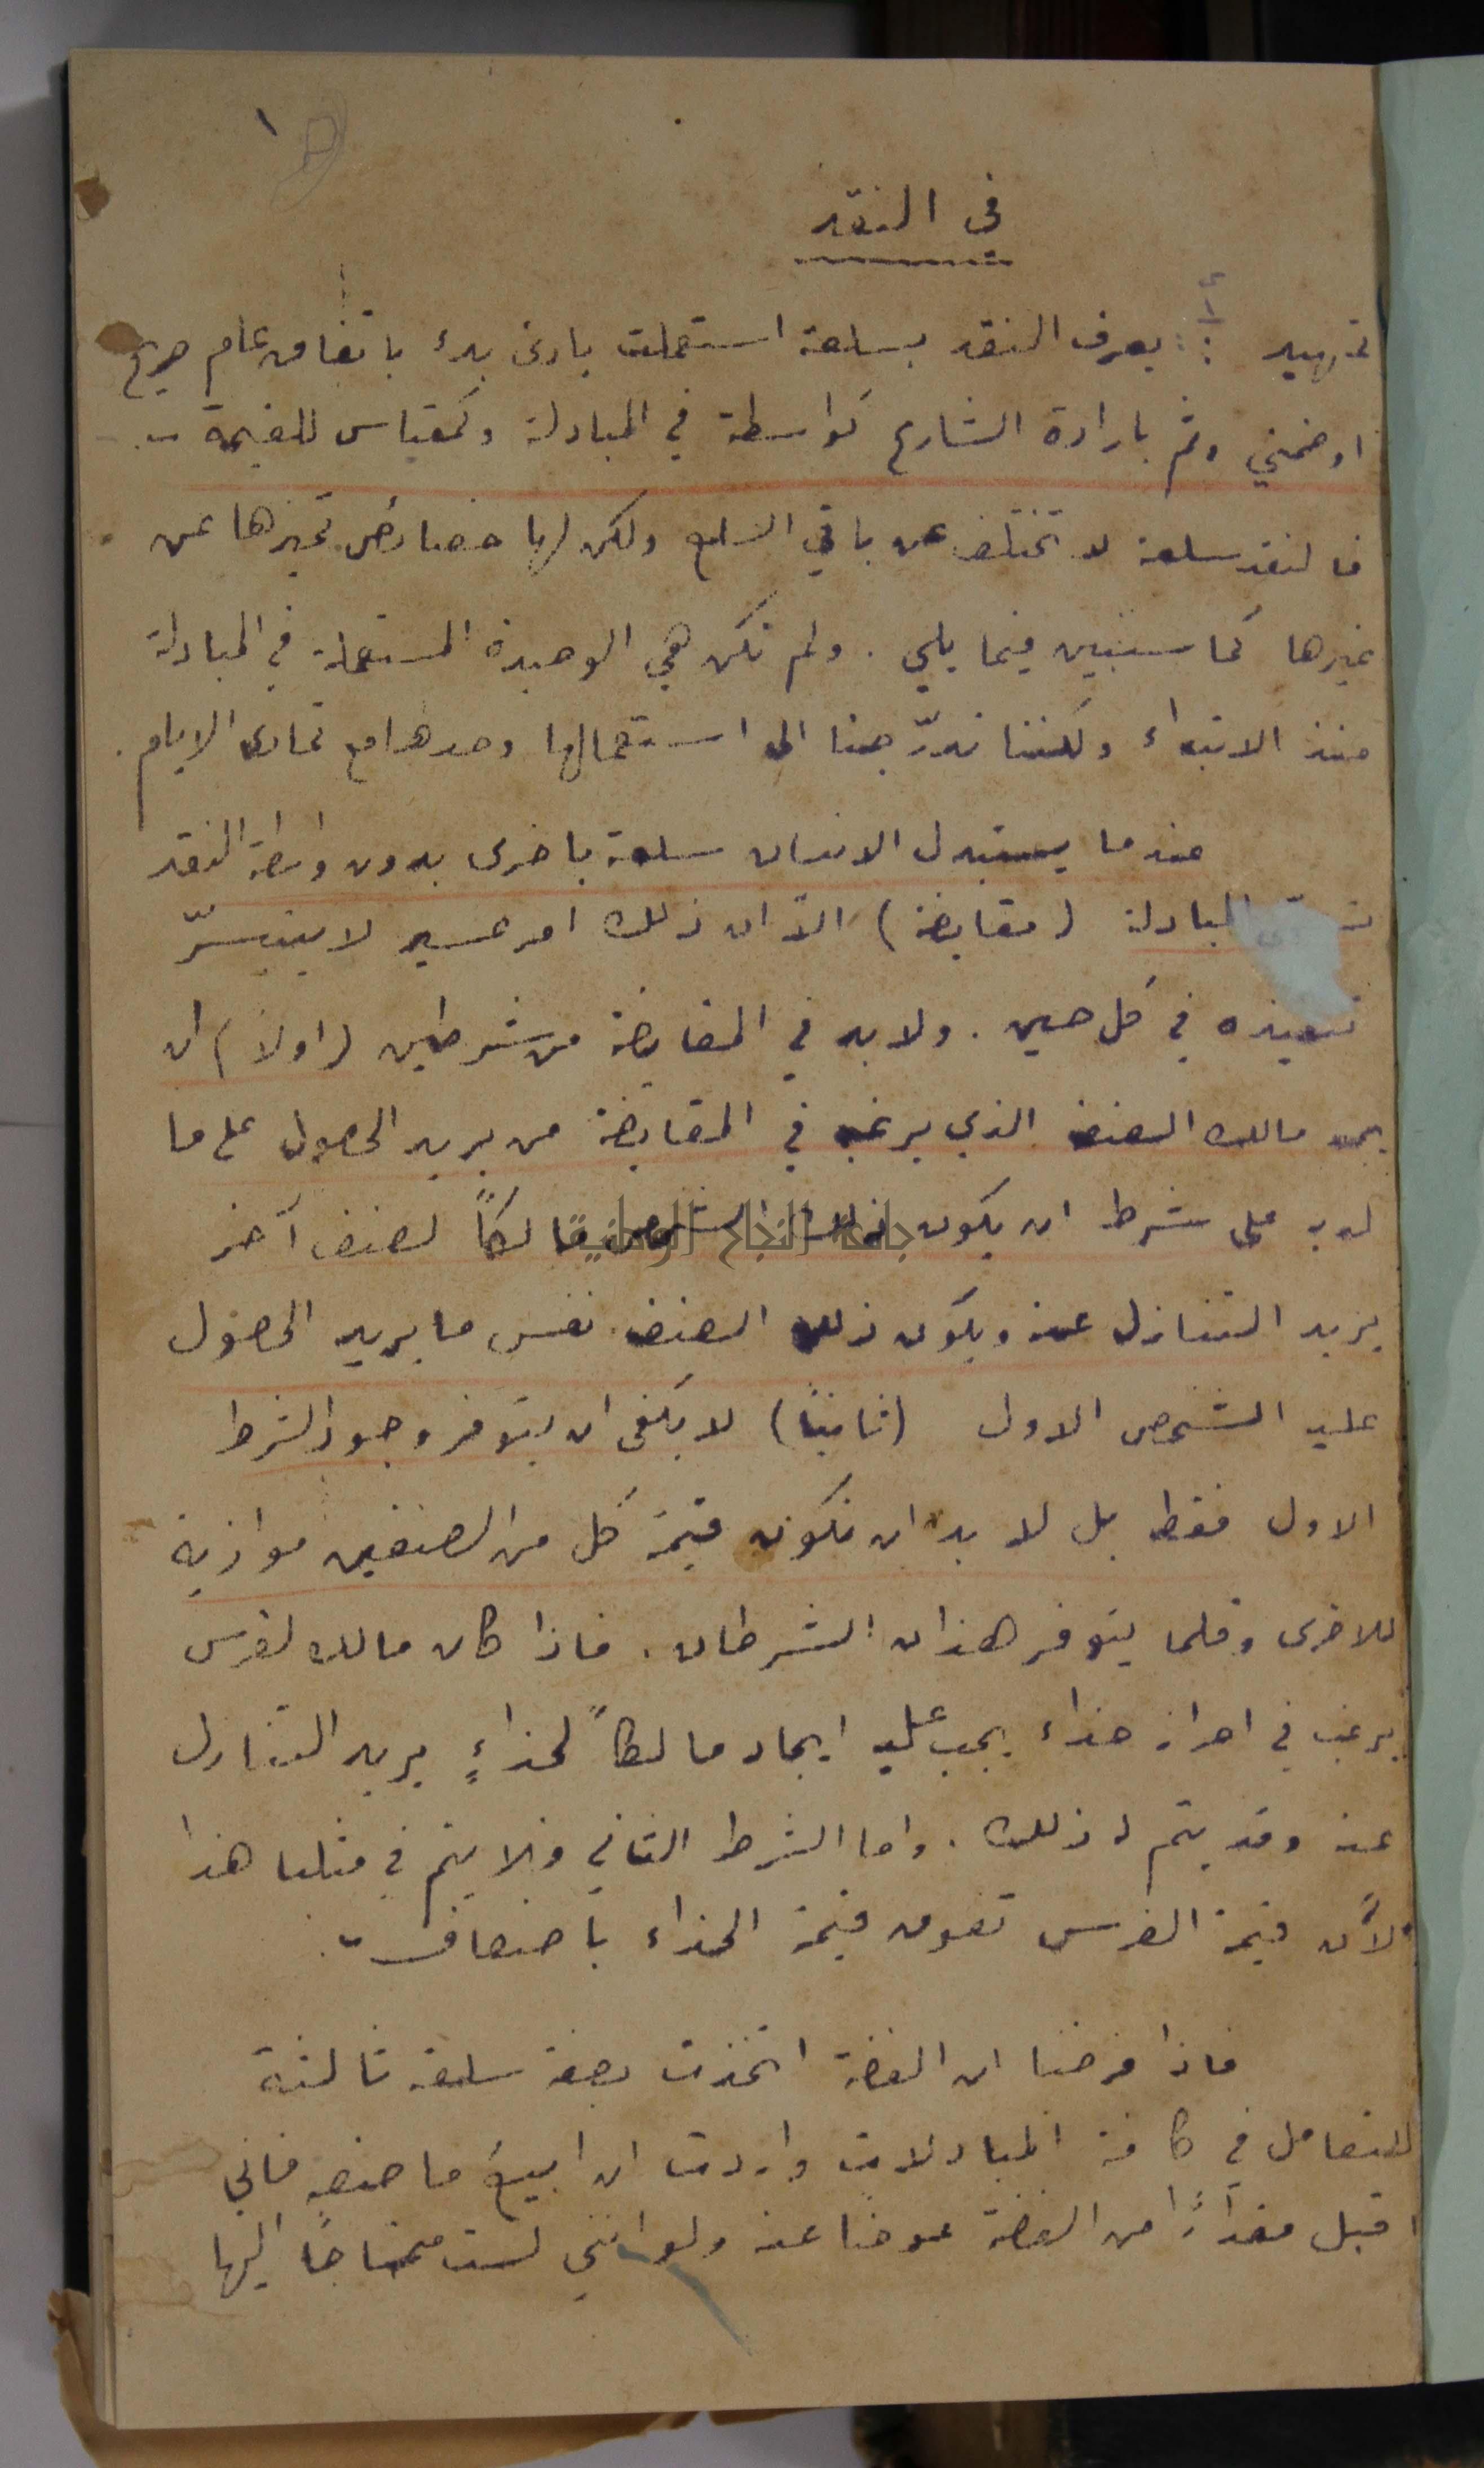 ١
في النقد
تمهيد : يعرف النقد بسلعة استعملت بادئ بدء باتفاق عام صريح
او ضمني وثم بارادة الشارع كواسطة في المبادلة وكمقياس للقيمة .
فالنقد سلعة لا تختلف عن باقي السلع ولكن لها خصائص تميزها عن
غيرها كما سنبين فيما يلي . ولم تكن هي الوحيدة المستعملة في المبادلة
منذ الابتداء ولكننا تدرّجنا الى استعمالها وحدها مع تمادى الايام .
عندما يستبدل الانسان سلعة باخرى بدون واسطة النقد
المبادلة (مقايضة) الاّ ان ذلك امر عسير لا يتيسّر
تنفيذه في كل حين . ولا بد في المقايضة من شرطين (اولاً) ان
يجد مالك الصنف الذي يرغب في المقايضة من يريد الحصول على ما
لديه على شرط ان يكون ذلك الشخص مالكاً لصنف آخر
جامعة النجاح الوطنية
يريد التنازل عنه ويكون ذلك الصنف نفس ما يريد الحصول
عليه الشخص الاول (ثانياً) لا يكفى ان يتوفر وجود الشرط
الاول فقط بل لا بد ان تكون قيمة كل من الصنفين موازية
للاخرى وقلما يتوفر هذان الشرطان . فاذا كان مالك لفرس
يرغب في احراز حذاء يجب عليه ايجاد مالكاً لحذاءٍ يريد التنازل
عنه وقد يتم له ذلك . واما الشرط الثاني فلا يتم في مثلنا هذا
لأن قيمة الفرس تفوق قيمة الحذاء بأضعاف .
فاذا فرضنا ان الفضة اتخذت بصفة سلعة ثالثة
للتعامل في كافة المبادلات واردت ان ابيع ما اصنعه فاني
اقبل مقداراً من الفضة عوضاً عنه ولو انني لست محتاجاً اليها